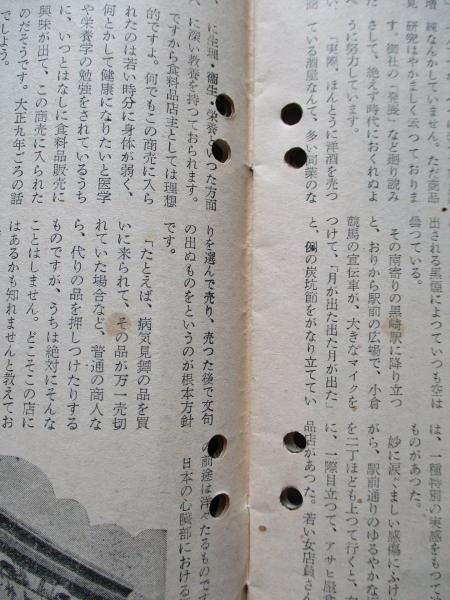 練なんかしていません。ただ商品
研究はやかましく云つております
す。御社の「發展」など廻り読み
さして、絶えず時代におくれぬよ
うに努力しています。
「実際、ほんとうに洋酒を売つ
ている酒屋なんて、多い同業のな
出される黒煙によつていつも空は
曇つている。
その南寄りの黒崎駅に降り立つ
と、おりから駅前の広場で、小倉
競馬の宣伝車が、大きなマイクを
つけて、「月が出た出た月が出た」
と、例の炭坑節をがなり立ててい
は、一種特別の実感をもつて
ものがあつた。
妙に涙ぐましい感傷にふけ
がら、駅前通りのゆるやかな
を二丁ほども上つて行くと、
に、一際目立つて、アサヒ
品店があつた。若い女店員さ
に生理、衞生、栄養といつた方面
に深い教養を持つておられます。
ですから食料品店主としては理想
的ですよ。何でもこの商売に入ら
れたのは若い時分に身体が弱く、
何とかして健康になりたいと医学
や栄養学の勉強をされているうち
に、いつとはなしに食料品販売に
興味が出て、この商売に入られた
のだそうです。大正九年ごろの話
でしよう。
りを選んで売り、売つた後で文句
の出ぬものをというのが根本方針
です。
「たとえば、病気見舞の品を買
いに来られて、その品が万一売切
れていた場合など、普通の商人な
ら、代りの品を押しつけたりする
ものですが、うちは絶対にそんな
ことはしません。どこそこの店に
はあるかも知れませんと教えてお
の前途は洋々たるものです
日本の心臓部における